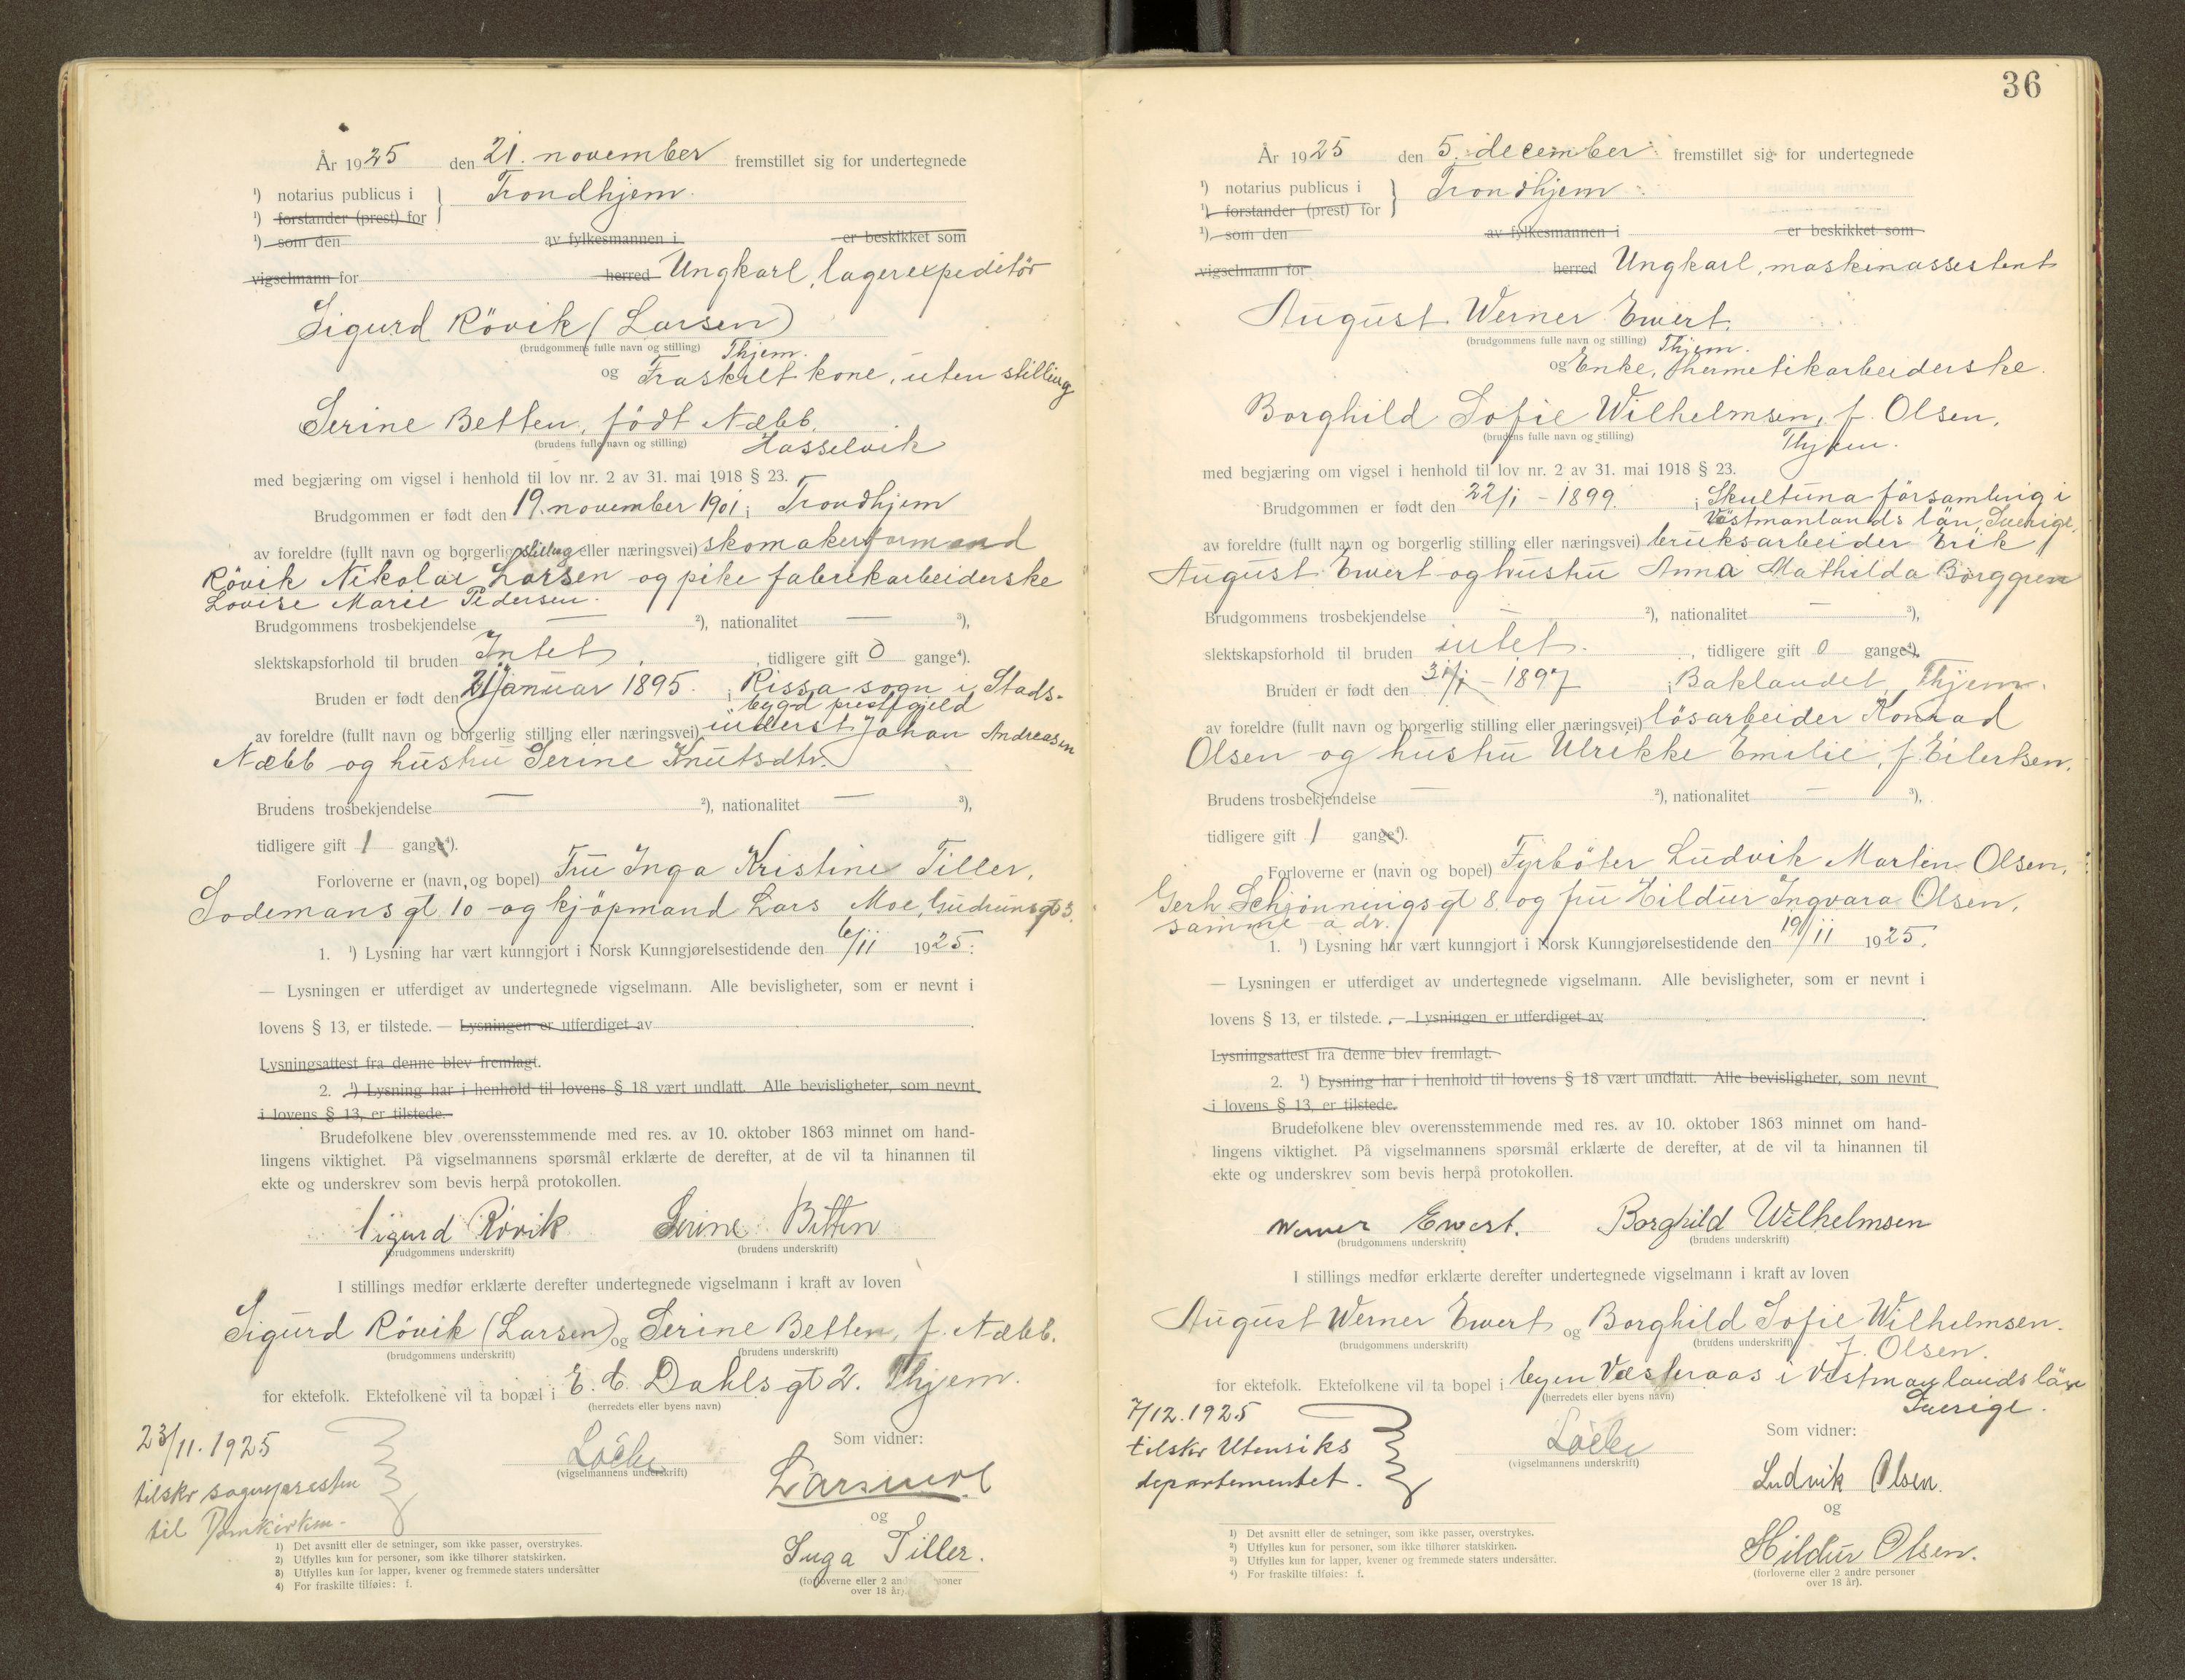 År 1925 den 21. november fremstillet sig for undertegnede
¹) notarius publicus i } Trondhjem.
¹) forstander (prest) for
¹) som den av fylkesmannen i er beskikket som
vigselmann for herred Ungkarl, lagerexpeditör
Sigurd Rövik (Larsen)
(brudgommens fulle navn og stilling) Thjem.
og Fraskilt kone, uten stilling
Serine Betten, födt Næbb.
(brudens fulle navn og stilling) Hasselvik
med begjæring om vigsel i henhold til lov nr. 2 av 31. mai 1918 § 23.
Brudgommen er født den 19. november 1901 i Trondhjem
av foreldre (fullt navn og borgerlig stilling eller næringsvei) skomakerformand
Rövik Nikolai Larsen og pike fabrikarbeiderske
Lovise Marie Pedersen.
Brudgommens trosbekjendelse — ²), nationalitet — ³),
slektskapsforhold til bruden Intet, tidligere gift 0 gange⁴).
Bruden er født den 21 januar 1895. i Rissa sogn i Stads-
bygd prestegjeld
av foreldre (fullt navn og borgerlig stilling eller næringsvei) inderst Johan Andreasen
Næbb og hustru Serine Knutsdtr.
Brudens trosbekjendelse — ²), nationalitet — ³),
tidligere gift 1 gange⁴).
Forloverne er (navn og bopel) Fru Inga Kristine Tiller,
Lodemans gt 10 og kjöpmand Lars Moe, Gudruns gt 3.
1. ¹) Lysning har vært kunngjort i Norsk Kunngjørelsestidende den 6/11 1925.
— Lysningen er utferdiget av undertegnede vigselmann. Alle bevisligheter, som er nevnt i
lovens § 13, er tilstede. — Lysningen er utferdiget av
Lysningsattest fra denne blev fremlagt.
2. ¹) Lysning har i henhold til lovens § 18 vært undlatt. Alle bevisligheter, som nevnt
i lovens § 13, er tilstede.
Brudefolkene blev overensstemmende med res. av 10. oktober 1863 minnet om hand-
lingens viktighet. På vigselmannens spørsmål erklærte de derefter, at de vil ta hinannen til
ekte og underskrev som bevis herpå protokollen.
Sigurd Rövik Serine Betten
(brudgommens underskrift) (brudens underskrift)
I stillings medfør erklærte derefter undertegnede vigselmann i kraft av loven
Sigurd Rövik (Larsen) og Serine Betten, f. Næbb.
(brudgommens underskrift) (brudens underskrift)
for ektefolk. Ektefolkene vil ta bopæl i E. C. Dahls gt 2. Thjem.
(herredets eller byens navn)
23/11. 1925
tilskr sognepresten
til Domkirken.
(vigselmannens underskrift)
Som vidner:
og
Inga Tiller.
(forloverne eller 2 andre personer
over 18 år).
1) Det avsnitt eller de setninger, som ikke passer, overstrykes.
2) Utfylles kun for personer, som ikke tilhører statskirken.
3) Utfylles kun for lapper, kvener og fremmede staters undersåtter
4) For fraskilte tilføies: f.
36
År 1925 den 5. december fremstillet sig for undertegnede
¹) notarius publicus i } Trondhjem.
¹) forstander (prest) for
¹) som den av fylkesmannen i er beskikket som
vigselmann for herred Ungkarl, maskinassistent
August Werner Ewert.
(brudgommens fulle navn og stilling) Thjem.
og Enke, hermetikarbeiderske.
Borghild Sofie Wilhelmsen, f. Olsen.
(brudens fulle navn og stilling) Thjem.
med begjæring om vigsel i henhold til lov nr. 2 av 31. mai 1918 § 23.
Brudgommen er født den 22/1 - 1899. i Skultuna församling i
Västmanlands län, Sverige.
av foreldre (fullt navn og borgerlig stilling eller næringsvei) bruksarbeider Erik
August Ewert og hustru Anna Mathilda Borggren
Brudgommens trosbekjendelse — ²), nationalitet — ³),
slektskapsforhold til bruden intet., tidligere gift 0 gange⁴).
Bruden er født den 31/1 - 1897 i Baklandet, Thjem.
av foreldre (fullt navn og borgerlig stilling eller næringsvei) lösarbeider Konrad
Olsen og hustru Ulrikke Emilie, f. Eilertsen.
Brudens trosbekjendelse — ²), nationalitet — ³),
tidligere gift 1 gange⁴).
Forloverne er (navn og bopel) Fyrböter Ludvik Martin Olsen,
Gerh Schjønnings gt 8. og fru Hildur Ingvara Olsen,
samme adr.
1. ¹) Lysning har vært kunngjort i Norsk Kunngjørelsestidende den 19/11 1925.
— Lysningen er utferdiget av undertegnede vigselmann. Alle bevisligheter, som er nevnt i
lovens § 13, er tilstede. — Lysningen er utferdiget av
Lysningsattest fra denne blev fremlagt.
2. ¹) Lysning har i henhold til lovens § 18 vært undlatt. Alle bevisligheter, som nevnt
i lovens § 13, er tilstede.
Brudefolkene blev overensstemmende med res. av 10. oktober 1863 minnet om hand-
lingens viktighet. På vigselmannens spørsmål erklærte de derefter, at de vil ta hinannen til
ekte og underskrev som bevis herpå protokollen.
Werner Ewert. Borghild Wilhelmsen
(brudgommens underskrift) (brudens underskrift)
I stillings medfør erklærte derefter undertegnede vigselmann i kraft av loven
August Werner Ewert og Borghild Sofie Wilhelmsen.
(brudgommens underskrift) (brudens underskrift) f. Olsen.
for ektefolk. Ektefolkene vil ta bopel i byen Vesteraas i Vestmanlands län
(herredets eller byens navn) Sverige.
7/12. 1925
tilskr Utenriks
departementet.
(vigselmannens underskrift)
Som vidner:
Ludvik Olsen.
og
Hildur Olsen.
(forloverne eller 2 andre personer
over 18 år).
1) Det avsnitt eller de setninger, som ikke passer, overstrykes.
²) Utfylles kun for personer, som ikke tilhører statskirken.
³) Utfylles kun for lapper, kvener og fremmede staters undersåtter.
⁴) For fraskilte tilføies: f.